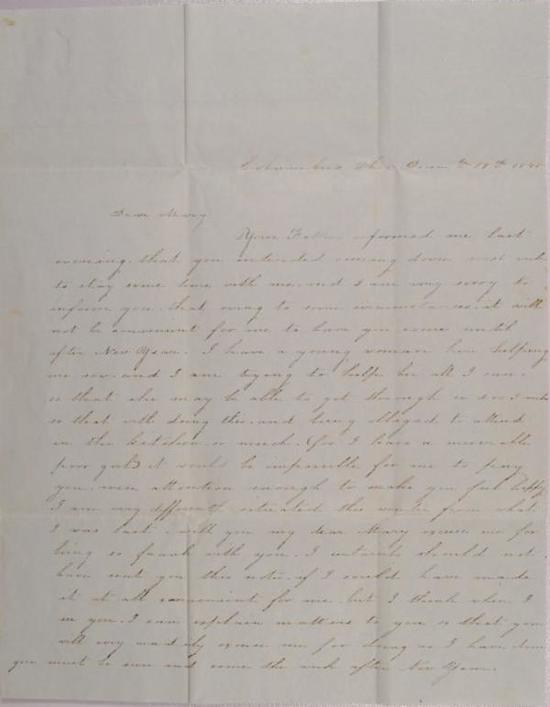 Columbus Ohio Decem 18th
Dear Mary
Your Father informed me last
evening that you intended coming down next week
to stay some time with me, and I am very sorry to
inform you that owing to some circumstances, it will
not be convenient for me to have you come until
after New Years. I have a young woman here helping
me sew, and I am trying to help her all I can,
so that she may be able to get through in
so that with doing this, and being obliged to attend
in the kitchen so much, (for I have a miserable
poor girl) it would be impossible for me to pay
you even attention enough to make you feel happy
I am very differently situated this winter from what
I was last. will you my dear Mary excuse me for
being so frank with you. I certainly should not
have sent you this note, if I could have made
it at all convenient for me, but I think when I
see you I can explain matters to you so that you
will very readily excuse me for doing as I have done
you must be sure and come the week after New Years.